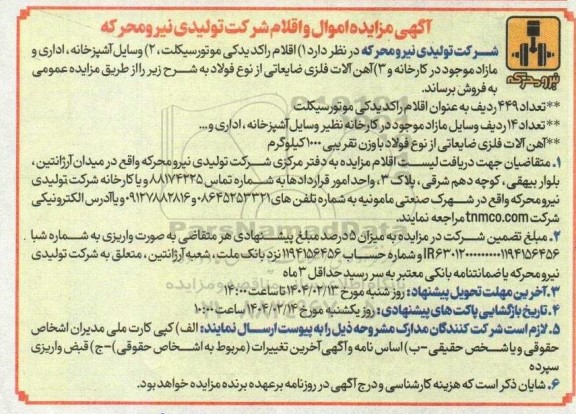 آگهی مزایده اموال و اقلام شرکت تولیدی نیرومحرکه
نیرومحرکه
شرکت تولیدی نیرومحرکه در نظر دارد ۱) اقلام راکد یدکی موتورسیکلت، ۲) وسایل آشپزخانه، اداری و
مازاد موجود در کارخانه و ۳) آهن آلات فلزی ضایعاتی از نوع فولاد به شرح زیر را از طریق مزایده عمومی
به فروش برساند.
**تعداد ۴۴۹ ردیف به عنوان اقلام راکد یدکی موتورسیکلت
**تعداد ۱۴ ردیف وسایل مازاد موجود در کارخانه نظیر وسایل آشپزخانه، اداری و...
**آهن آلات فلزی ضایعاتی از نوع فولاد با وزن تقریبی ۱۰۰۰ کیلوگرم
۱. متقاضیان جهت دریافت لیست اقلام مزایده به دفتر مرکزی شرکت تولیدی نیرومحرکه واقع در میدان آرژانتین،
بلوار بیهقی، کوچه دهم شرقی، پلاک ۳، واحد امور قراردادها به شماره تماس ۸۸۱۷۴۲۲۵ و یا کارخانه شرکت تولیدی
نیرومحرکه واقع در شهرک صنعتی مامونیه به شماره تلفن های ۰۸۶۴۵۲۵۳۳۲۱ و ۰۹۱۲۷۸۸۲۸۱۶ و یا آدرس الکترونیکی
شرکت tnmco.com مراجعه نمایند.
۲. مبلغ تضمین شرکت در مزایده به میزان ۵ درصد مبلغ پیشنهادی هر متقاضی به صورت واریزی به شماره شبا
و شماره حساب ۱۱۹۴۱۵۶۴۵۶ نزد بانک ملت، شعبه آرژانتین، متعلق به شرکت تولیدی
نیرومحرکه یا ضمانتنامه بانکی معتبر به سر رسید حداقل ۳ ماه
۳. آخرین مهلت تحویل پیشنهاد: روز شنبه مورخ ۱۴۰۴/۰۲/۱۳ تا ساعت ۱۴:۰۰
۴. تاریخ بازگشایی پاکت های پیشنهادی: روز یکشنبه مورخ ۱۴۰۴/۰۲/۱۴ ساعت ۱۰:۰۰
۵. لازم است شرکت کنندگان مدارک مشروحه ذیل را به پیوست ارسال نمایند: الف) کپی کارت ملی مدیران اشخاص
حقوقی و یا شخص حقیقی-ب) اساس نامه و آگهی آخرین تغییرات (مربوط به اشخاص حقوقی)-ج) قبض واریزی
سپرده
۶. شایان ذکر است که هزینه کارشناسی و درج آگهی در روزنامه بر عهده برنده مزایده خواهد بود.